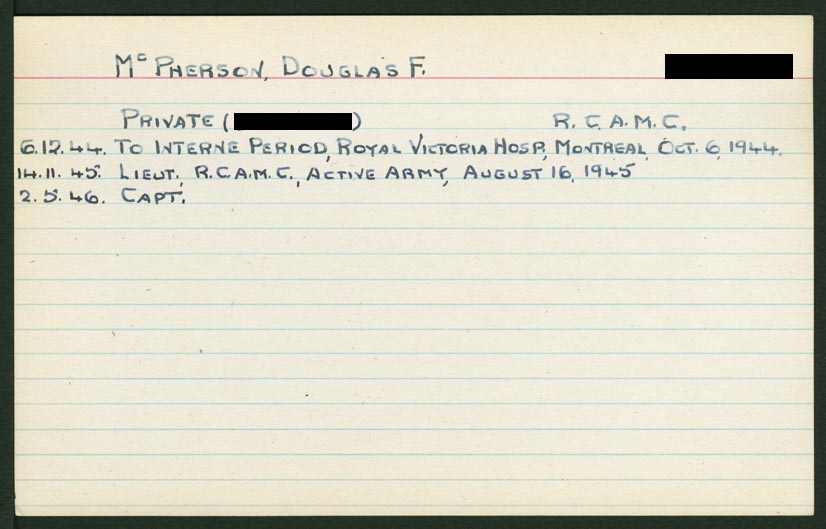 McPHERSON, DOUGLAS F.
PRIVATE ( ) R.C.A.M.C.
6.12.44. TO INTERNE PERIOD, ROYAL VICTORIA HOSP., MONTREAL, OCT. 6, 1944.
14.11.45. LIEUT., R.C.A.M.C., ACTIVE ARMY, AUGUST 16, 1945
2.5.46. CAPT.